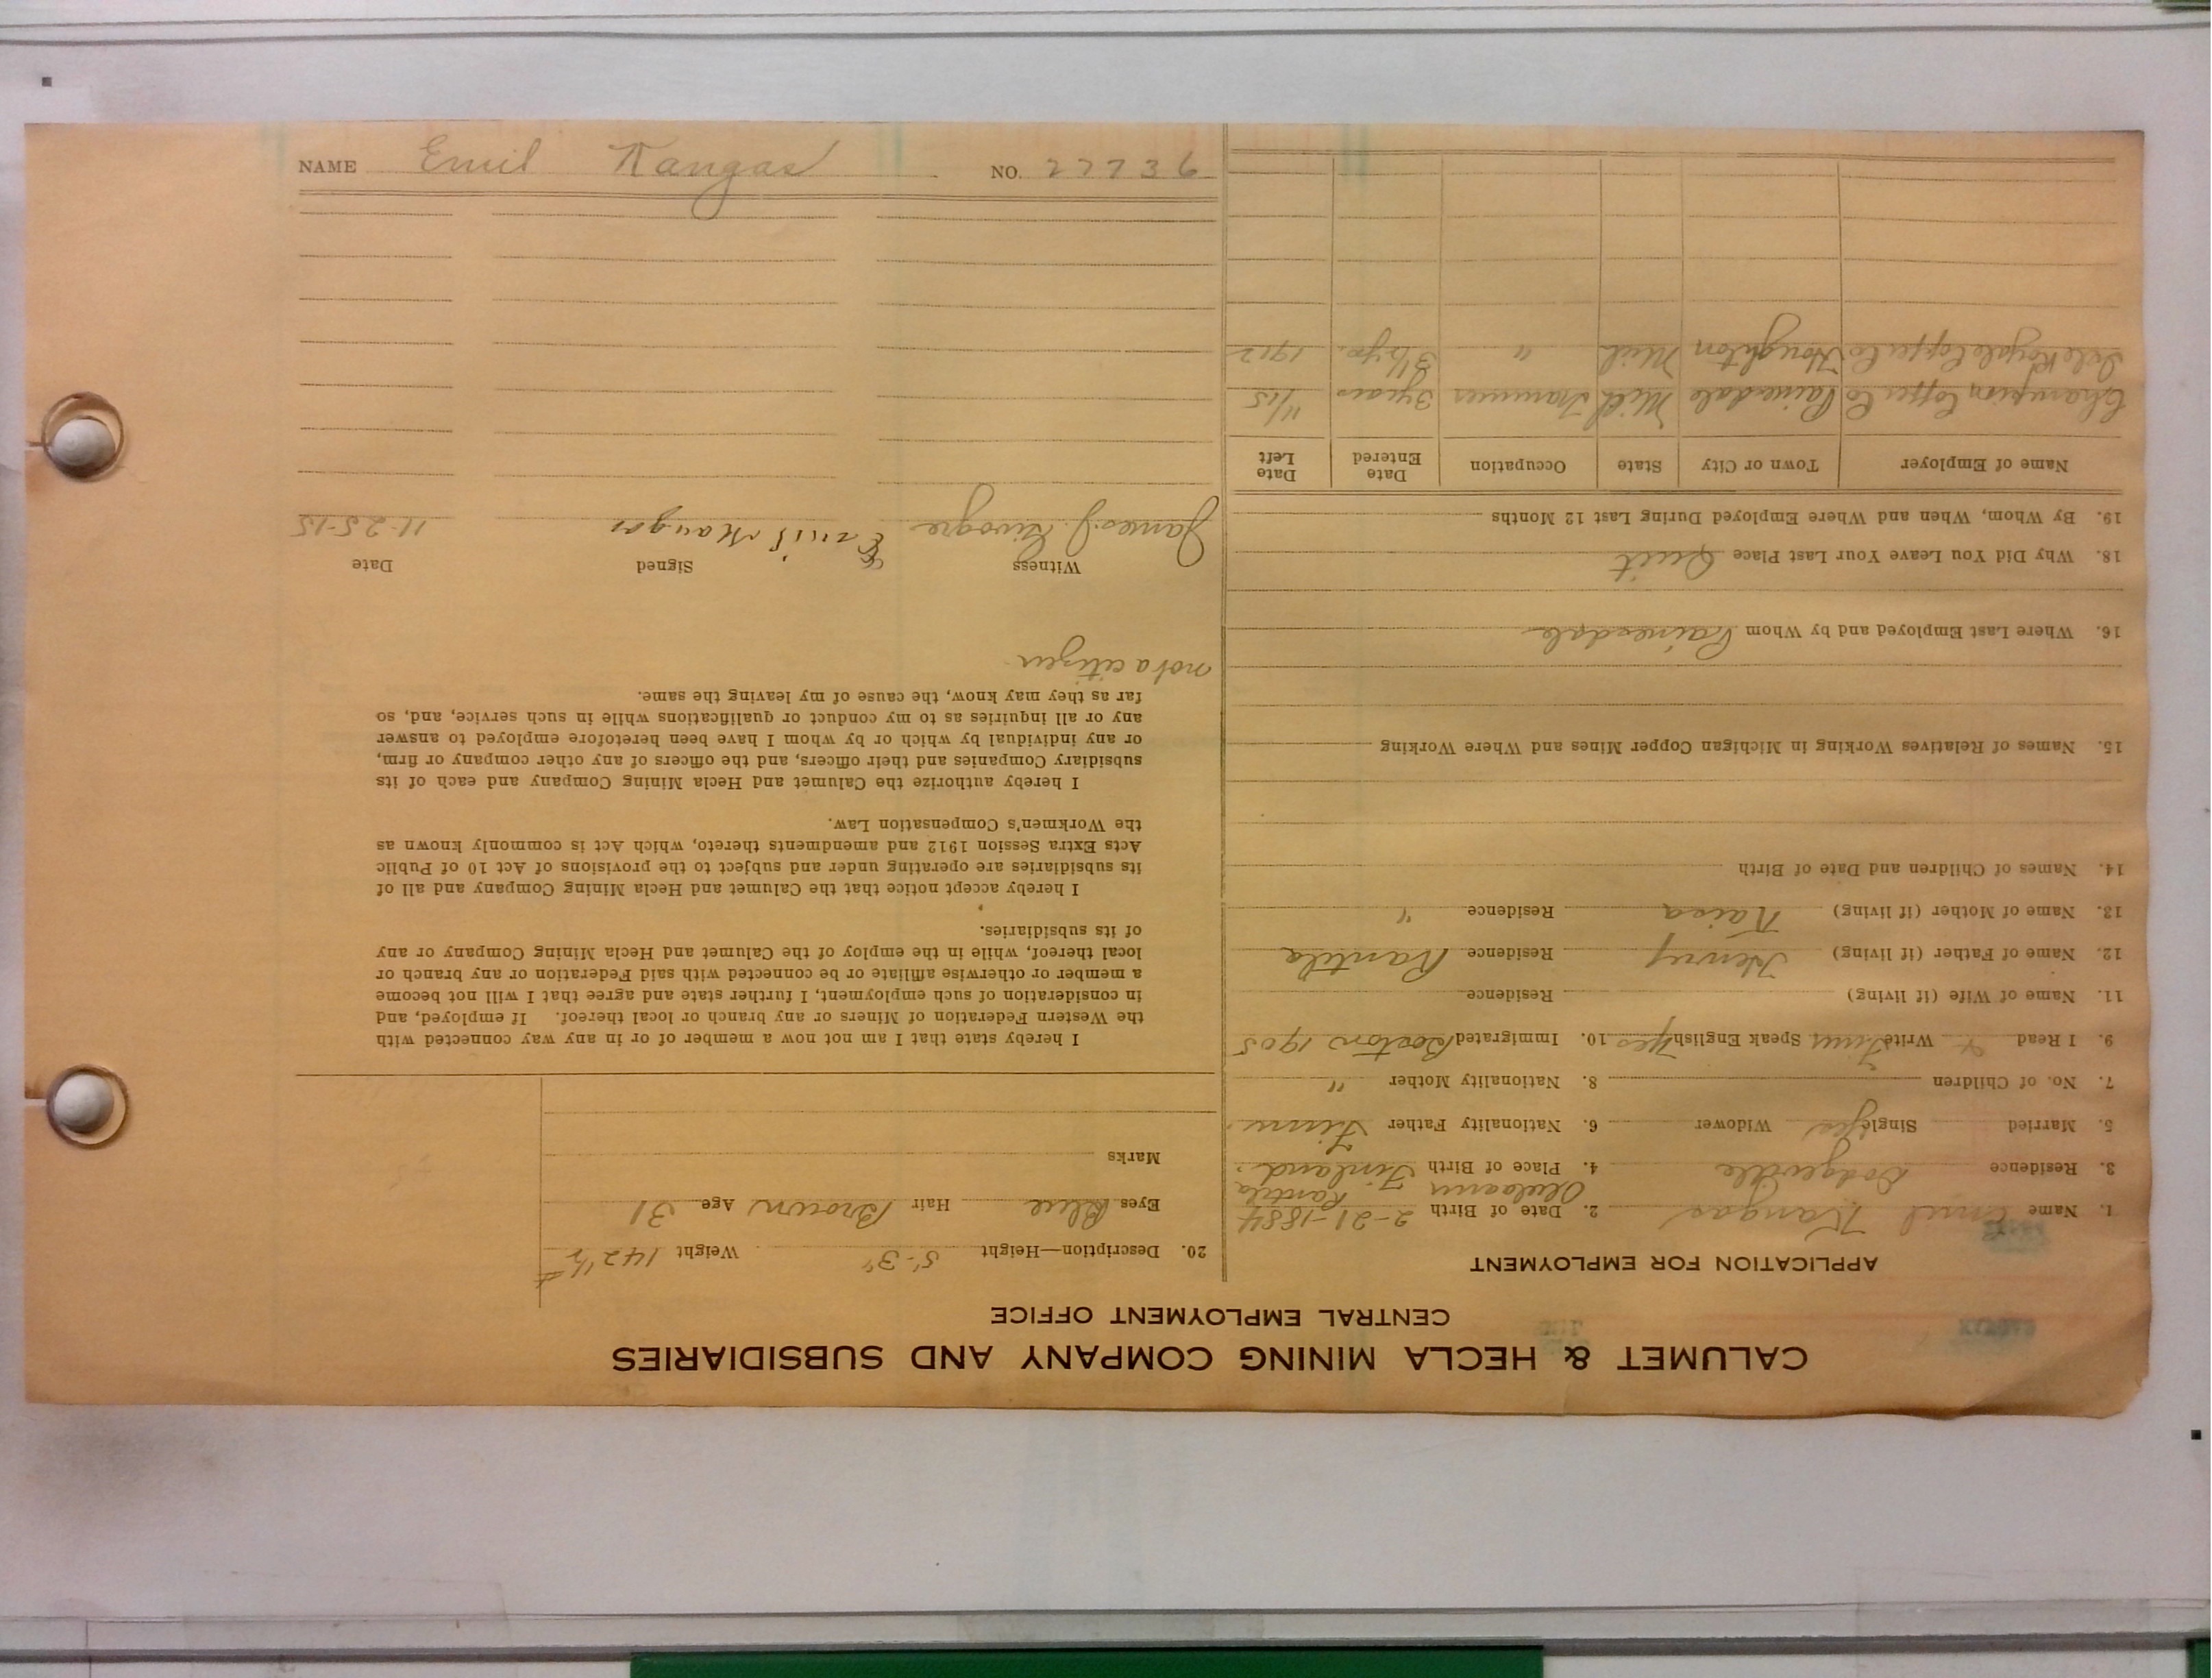 CALUMET & HECLA MINING COMPANY AND SUBSIDIARIES
CENTRAL EMPLOYMENT OFFICE
APPLICATION FOR EMPLOYMENT
1. Name Emil Kangas 2. Date of Birth 2-21-1884
3. Residence Dodgeville 4. Place of Birth Finland Kantila
5. Married Single Yes Widower 6. Nationality Father Finn
7. No. of Children 8. Nationality Mother "
9. I Read & Write Finn Speak English Yes 10. Immigrated Boston 1905
11. Name of Wife (if living) Residence
12. Name of Father (if living) Henry Residence Kantila
13. Name of Mother (if living) Kaisa Residence "
14. Names of Children and Date of Birth
15. Names of Relatives Working in Michigan Copper Mines and Where Working
16. Where Last Employed and by Whom Painesdale
18. Why Did You Leave Your Last Place Quit
19. By Whom, When and Where Employed During Last 12 Months
Name of Employer Town or City State Occupation Date Entered Date Left
Champion Copper Co Painesdale Mich Trammer 3 years 11/15
Isle Royale Copper Co Houghton Mich " 3 1/2 yrs. 1912
20. Description—Height 5'-3" Weight 142 1/2 #
Eyes Blue Hair Brown Age 31
Marks
I hereby state that I am not now a member of or in any way connected with
the Western Federation of Miners or any branch or local thereof. If employed, and
in consideration of such employment, I further state and agree that I will not become
a member or otherwise affiliate or be connected with said Federation or any branch or
local thereof, while in the employ of the Calumet and Hecla Mining Company or any
of its subsidiaries.
I hereby accept notice that the Calumet and Hecla Mining Company and all of
its subsidiaries are operating under and subject to the provisions of Act 10 of Public
Acts Extra Session 1912 and amendments thereto, which Act is commonly known as
the Workmen's Compensation Law.
I hereby authorize the Calumet and Hecla Mining Company and each of its
subsidiary Companies and their officers, and the officers of any other company or firm,
or any individual by which or by whom I have been heretofore employed to answer
any or all inquiries as to my conduct or qualifications while in such service, and, so
far as they may know, the cause of my leaving the same.
not a citizen
Witness Signed Date
James J. Emil Kangas 11-25-15
NAME Emil Kangas NO. 27736